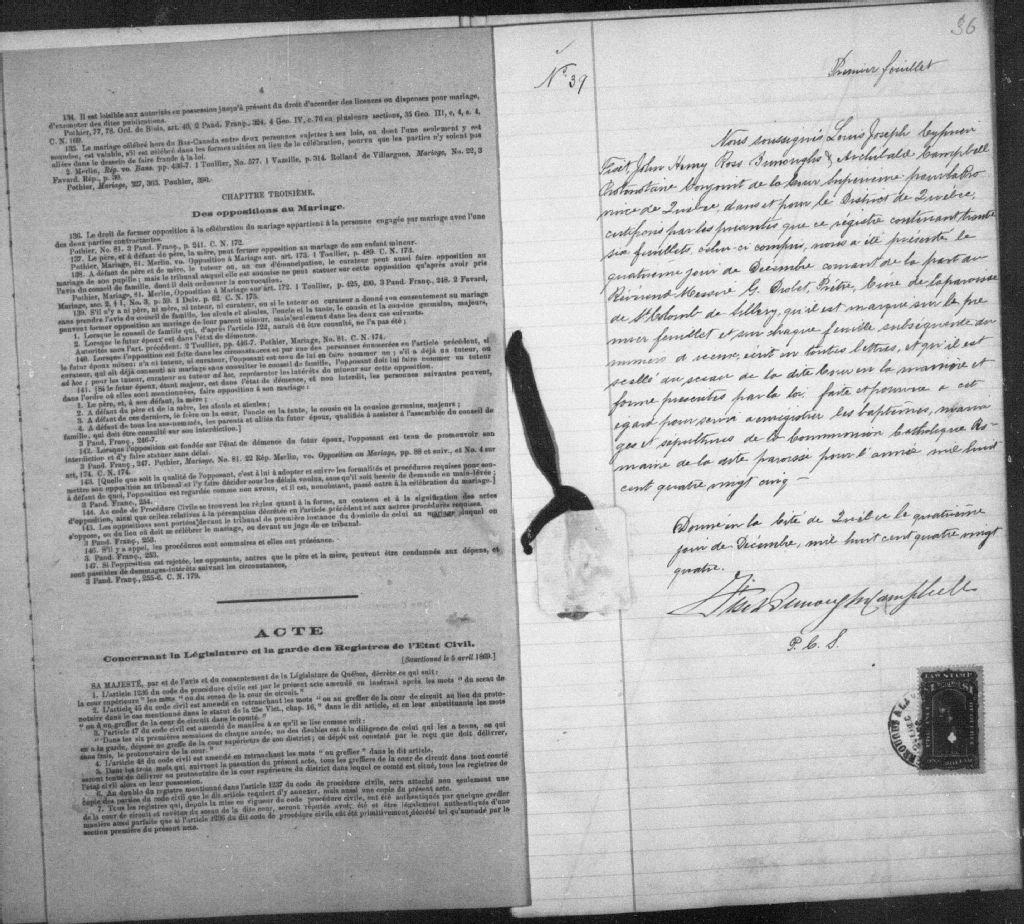 4
134. Il est loisible aux autorités en possession jusqu'à présent du droit d'accorder des licences ou dispenses pour mariage,
d'exempter des dites publications.
Pothier, 77, 78. Ord. de Blois, art. 40, 2 Pand. Franç., 324. 4 Geo. IV, c. 76 en plusieurs sections, 35 Geo. III, c, 4, s. 4,
C. N. 169.
135. Le mariage célébré hors du Bas-Canada entre deux personnes sujettes à ses lois, ou dont l'une seulement y est
soumise, est valable, s'il est célébré dans les formes usitées au lieu de la célébration, pourvu que les parties n'y soient pas
allées dans le dessein de faire fraude à la loi.
2 Merlin, Rép. vo. Bans. pp. 436-7. 1 Toullier, No. 577. 1 Vazille, p. 314. Rolland de Villargues, Mariage, No. 22, 3
Favard. Rép., p. 30.
Pothier, Mariage, 327, 363. Pouhier, 390.
CHAPITRE TROISIÈME.
Des oppositions au Mariage.
136. Le droit de former opposition à la célébration du mariage appartient à la personne engagée par mariage avec l'une
des deux parties contractantes.
Pothier, No. 81. 2 Pand. Franç., p. 241. C. N. 172.
137. Le père, et à défaut de père, la mère, peut former opposition au mariage de son enfant mineur.
Pothier, Mariage, 81. Merlin, vo. Opposition à Mariage sur art. 173. 1 Toullier, p. 489. C. N. 173.
138. A défaut de père et de mère, le tuteur ou, au cas d'émancipation, le curateur peut aussi faire opposition au
mariage de son pupille ; mais le tribunal auquel elle est soumise ne peut statuer sur cette opposition qu'après avoir pris
l'avis du conseil de famille, dont il doit ordonner la convocation.
Pothier, Mariage, 81. Merlin, Opposition à Mariage sur art. 172. 1 Toullier, p. 425, 490. 3 Pand. Franç., 248. 2 Favard,
Mariage, sec. 2, § 1, No. 3, p. 59. 1 Delv. p. 62. C. N. 175.
139. S'il n'y a ni père, ni mère, ni tuteur, ni curateur, ou si le tuteur ou curateur a donné son consentement au mariage
sans prendre l'avis du conseil de famille, les aïeuls et aïeules, l'oncle et la tante, le cousin et la cousine germains, majeurs,
peuvent former opposition au mariage de leur parent mineur, mais seulement dans les deux cas suivants.
1. Lorsque le conseil de famille qui, d'après l'article 122, aurait dû être consulté, ne l'a pas été ;
2. Lorsque le futur époux est dans l'état de démence.
Autorités sous l'art. précédent. 2 Toullier, pp. 446-7. Pothier, Mariage, No. 81. C. N. 174.
140. Lorsque l'opposition est faite dans les circonstances et par une des personnes énoncées en l'article précédent, si
le futur époux mineur n'a ni tuteur, ni curateur, l'opposant est tenu de lui en faire nommer un ; s'il a déjà un tuteur, ou
curateur, qui ait déjà consenti au mariage sans consulter le conseil de famille, l'opposant doit lui faire nommer un tuteur
ad hoc ; pour les tuteur, curateur ou tuteur ad hoc, représenter les intérêts du mineur sur cette opposition.
141. [Si le futur époux, étant majeur, est dans l'état de démence, et non interdit, les personnes suivantes peuvent,
dans l'ordre où elles sont mentionnées, faire opposition à son mariage :
1. Le père, et, à son défaut, la mère ;
2. A défaut du père et de la mère, les aïeuls et aïeules ;
3. A défaut de ces derniers, le frère ou la sœur, l'oncle ou la tante, le cousin ou la cousine germains, majeurs ;
4. A défaut de tous les sus-nommés, les parents et alliés du futur époux, qualifiés à assister à l'assemblée du conseil de
famille, qui doit être consulté sur son interdiction.]
3 Pand. Franç., 246-7.
142. Lorsque l'opposition est fondée sur l'état de démence du futur époux, l'opposant est tenu de promouvoir son
interdiction et d'y faire statuer sans délai.
3 Pand. Franç., 247. Pothier, Mariage, No. 81. 22 Rép. Merlin, vo. Opposition au Mariage, pp. 88 et suiv., et No. 4 sur
art. 174. C. N. 174.
143. [Quelle que soit la qualité de l'opposant, c'est à lui à adopter et suivre les formalités et procédures requises pour sou-
mettre son opposition au tribunal et l'y faire décider sous les délais voulus, sans qu'il soit besoin de demande en main-lévée ;
à défaut de quoi, l'opposition est regardée comme non avenue, et il est, nonobstant, passé outre à la célébration du mariage.]
3 Pand. Franç., 254.
144. Au code de Procédure Civile se trouvent les règles quant à la forme, au contenu et à la signification des actes
d'opposition, ainsi que celles relatives à la péremption décrétée en l'article précédent et aux autres procédures requises.
145. Les oppositions sont portées devant le tribunal de première instance du domicile de celui au mariage duquel on
s'oppose, ou du lieu où doit se célébrer le mariage, ou devant un juge de ce tribunal.
3 Pand. Franç., 253.
146. S'il y a appel, les procédures sont sommaires et elles ont préséance.
3 Pand. Franç., 253.
147. Si l'opposition est rejetée, les opposants, autres que le père et la mère, peuvent être condamnés aux dépens, et
sont passibles de dommages-intérêts suivant les circonstances.
3 Pand. Franç., 255-6. C. N. 179.
ACTE
Concernant la Législature et la garde des Registres de l'Etat Civil.
[Sanctionné le 5 avril 1869.]
SA MAJESTÉ, par et de l'avis et du consentement de la Législature de Québec, décrète ce qui suit :
1. L'article 1236 du code de procédure civile est par le présent acte amendé en insérant après les mots " du sceau de
la cour supérieure " les mots " ou du sceau de la cour de circuit."
2. L'article 45 du code civil est amendé en retranchant les mots " ou au greffier de la cour de circuit au lieu du proto-
notaire dans le cas mentionné dans le statut de la 25e Vict., chap. 16," dans le dit article, et en leur substituant les mots
" ou au greffier de la cour de circuit dans le comté."
3. L'article 47 du code civil est amendé de manière à ce qu'il se lise comme suit :
" Dans les six premières semaines de chaque année, un des doubles est à la diligence de celui qui les a tenus, ou qui
en a la garde, déposé au greffe de la cour supérieure de son district ; ce dépôt est constaté par le reçu que doit délivrer,
sans frais, le protonotaire de la cour."
4. L'article 48 du code civil est amendé en retranchant les mots " ou greffier " dans le dit article.
5. Dans les trois mois qui suivront la passation du présent acte, tous les greffiers de la cour de circuit dans tout comté
seront tenus de délivrer au protonotaire de la cour supérieure du district dans lequel ce comté est situé, tous les registres de
l'état civil alors en leur possession.
6. Au double du registre mentionné dans l'article 1237 du code de procédure civile, sera attaché non seulement une
copie des parties du code civil que le dit article requiert d'y annexer, mais aussi une copie du présent acte.
7. Tous les registres qui, depuis la mise en vigueur du code procédure civile, ont été authentiqués par quelque greffier
de la cour de circuit et revêtus du sceau de la dite cour, seront réputés avoir été et être légalement authentiqués d'une
manière aussi parfaite que si l'article 1236 du dit code de procédure civile eût été primitivement décrété tel qu'amendé par la
section première du présent acte.
36
No 39
Premier feuillet
Nous soussignés, Louis Joseph Cyprien
Fiset, John Henry Ross Burroughs & Archibald Campbell
Protonotaire Conjoint de la Cour Supérieure pour la Pro
vince de Québec, dans et pour le District de Québec,
certifions par les présentes que ce régistre contenant trente
six feuillets, celui-ci compris, nous a été présenté le
quatrieme jour de Décembre courant de la part du
Révérend Messire G. Drolet, Prêtre, Curé de la paroisse
de St Colomb de Sillery, qu'il est marqué sur le pre
mier feuillet et sur chaque feuillet subséquent du
numéro d'icelui, écrit en toutes lettres, et qu'il est
scellé du sceau de la dite Cour en la manière et
forme prescrites par la loi, faite et pourvue à cet
égard pour servir à enregistrer les baptêmes, maria
ges et sépultures de la Communion Catholique Ro-
maine de la dite paroisse pour l'année mil huit
cent quatre vingt cinq -
Donné en la Cité de Québec le quatrieme
jour de Décembre, mil huit cent quatre vingt
quatre.
Fiset Burroughs Campbell
P. C. S.
LAW STAMP